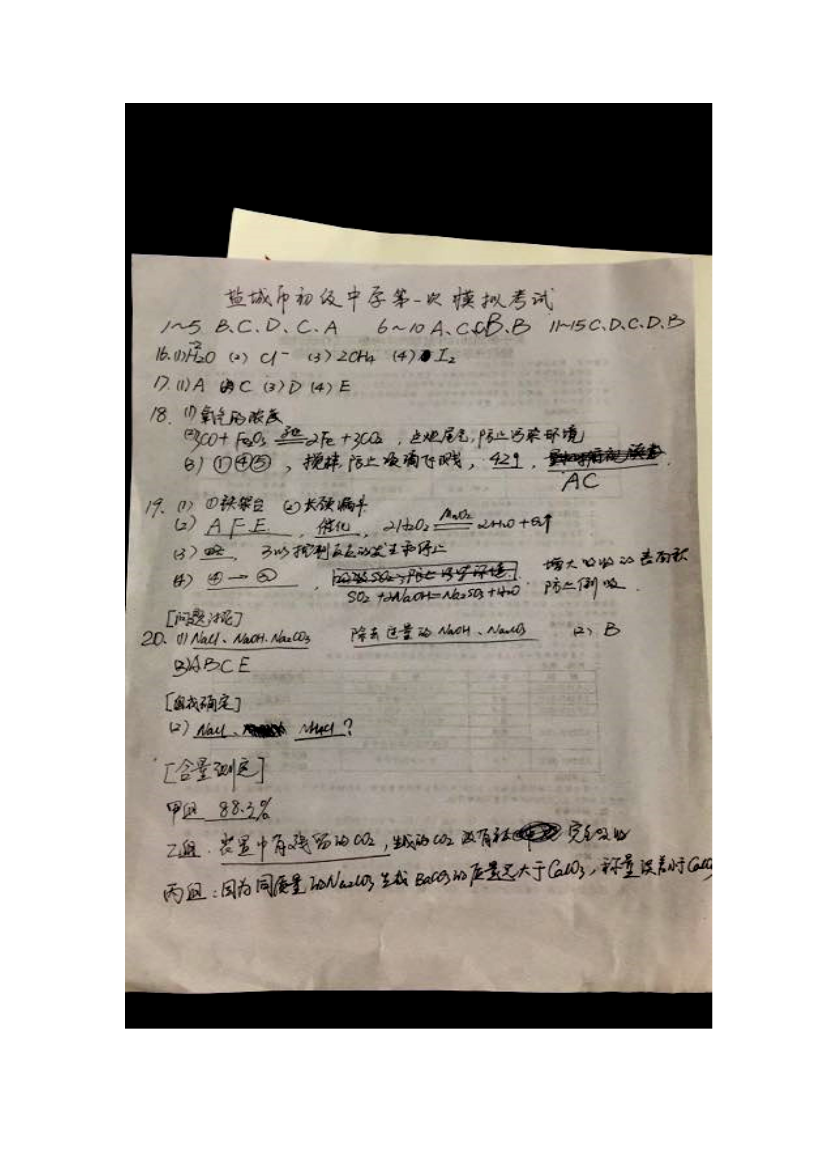 盐城市初级中学第一次模拟考试
1~5 B.C.D、C.A 6~10 A、C、D、B、B 11~15 C、D、C、D、B
16.(1) H₂O (2) Cl⁻ (3) 2CH₄ (4) I₂
17.(1)A (2)C (3)D (4)E
18. (1) 氧气的浓度
(2) 3CO+Fe₂O₃ 高温 2Fe+3CO₂，点燃尾气,防止污染环境
(3) ①④⑤，搅拌,防止液滴飞溅，42g，
AC
19. (1) ①铁架台 ②长颈漏斗
(2) A F E，催化，2H₂O₂ MnO₂ 2H₂O+O₂↑
(3) 可以控制反应的发生和停止
(4) ④→③ 增大吸收的表面积
SO₂+2NaOH=Na₂SO₃+H₂O 防止倒吸.
[问题讨论]
20. (1) NaCl、NaOH、Na₂CO₃ 除去过量的NaOH、Na₂CO₃ (2) B
(3) ABCE
[确定]
(2) NaCl、NH₄Cl?
[含量测定]
甲组 88.3%
乙组. 装置中有残留的CO₂，生成的CO₂没有被完全吸收
丙组：因为同质量的Na₂CO₃生成BaCO₃的质量大于CaCO₃，称量误差小于